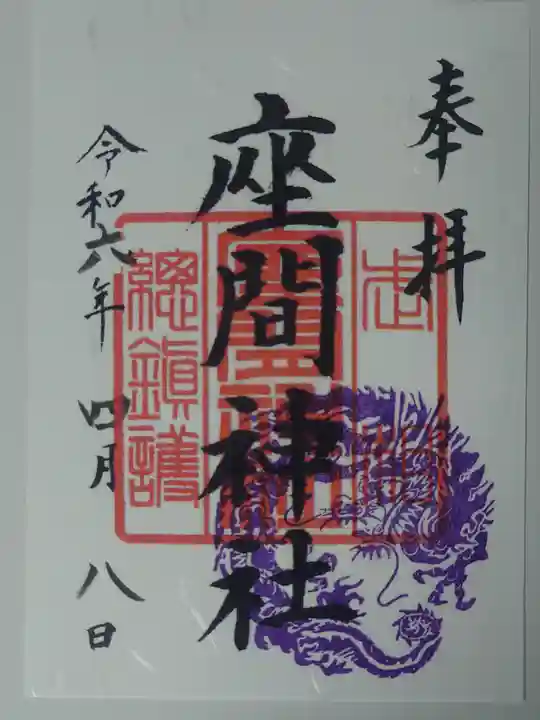 奉拝
座間神社
總鎮護
令和六年四月八日